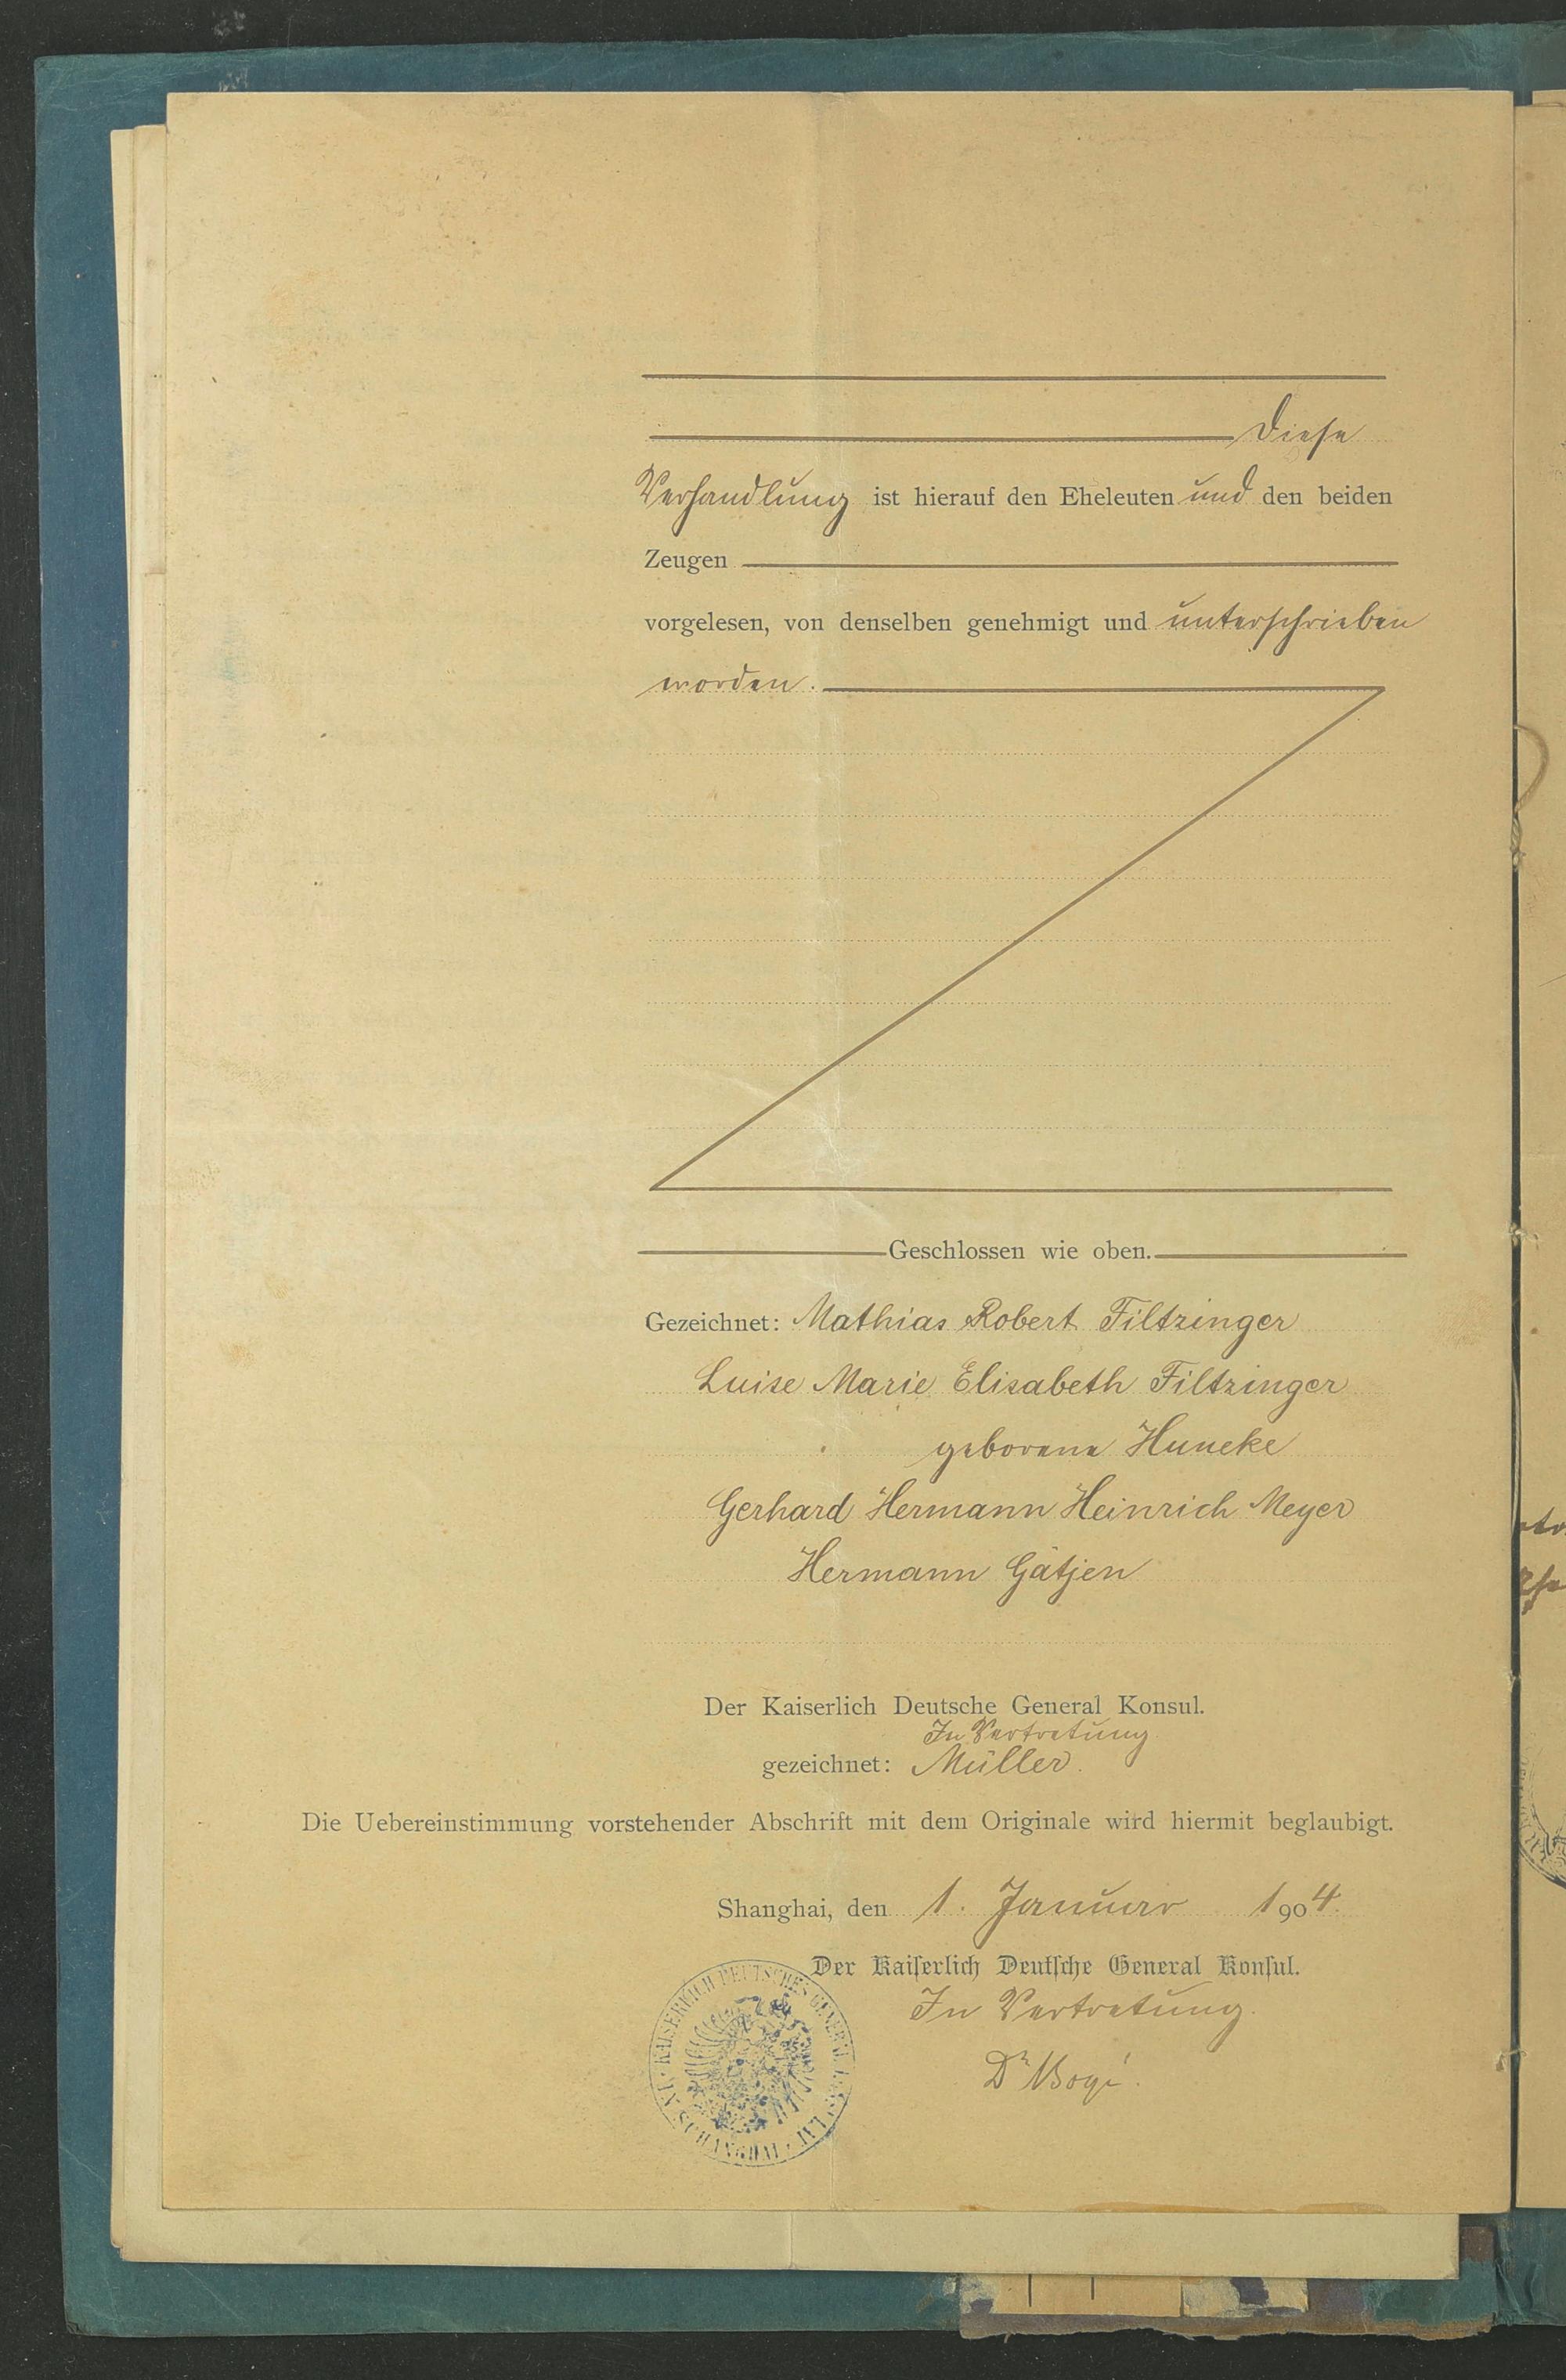 Diese
Verhandlung ist hierauf den Eheleuten und den beiden
Zeugen
vorgelesen, von denselben genehmigt und unterschrieben
worden.
Geschlossen wie oben.
Gezeichnet: Mathias Robert Filtzinger
Luise Marie Elisabeth Filtzinger
geborene Huneke
Gerhard Hermann Heinrich Meyer
Hermann Gätjen
Der Kaiserlich Deutsche General Konsul.
In Vertretung
gezeichnet: Müller.
Die Uebereinstimmung vorstehender Abschrift mit dem Originale wird hiermit beglaubigt.
Shanghai, den 1. Januar 1904.
Der Kaiserlich Deutsche General Konsul.
In Vertretung.
Dr
KAISERLICH DEUTSCHES GENERAL CONSULAT
SCHANGHAI